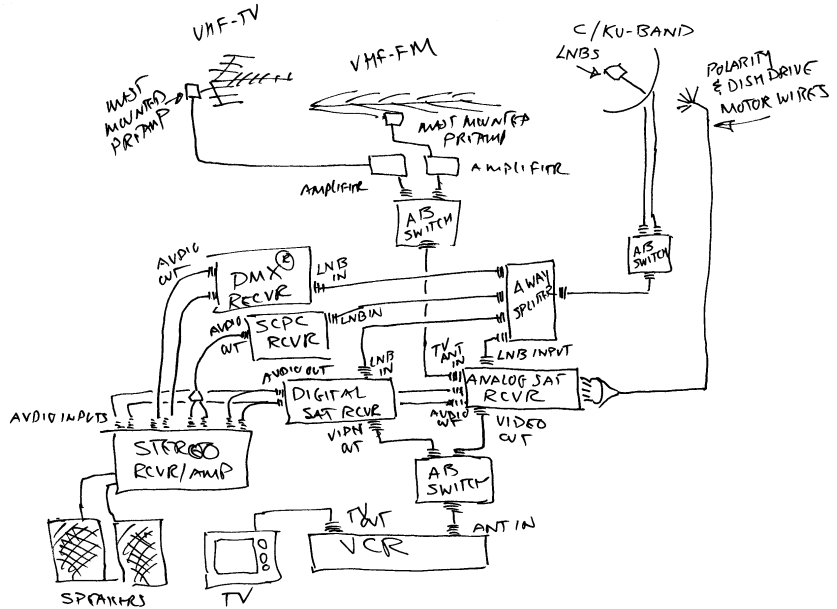 VHF-TV
VHF-FM
C/KU-BAND
LNBS
POLARITY
& DISH DRIVE
MOTOR WIRES
MAST
MOUNTED
PREAMP
MAST MOUNTED
PREAMP
AMPLIFIER
AMPLIFIER
AB
SWITCH
AB
SWITCH
AUDIO
OUT
DMX®
RECVR
LNB
IN
4 WAY
SPLITTER
SCPC
RCVR
LNB IN
AUDIO
OUT
TV
ANT
IN
LNB INPUT
AUDIO OUT
LNB
IN
ANALOG SAT
RCVR
DIGITAL
SAT RCVR
AUDIO INPUTS
AUDIO
OUT
VIDEO
OUT
OUT
STEREO
RCVR/AMP
AB
SWITCH
TV
OUT
ANT IN
VCR
SPEAKERS
TV